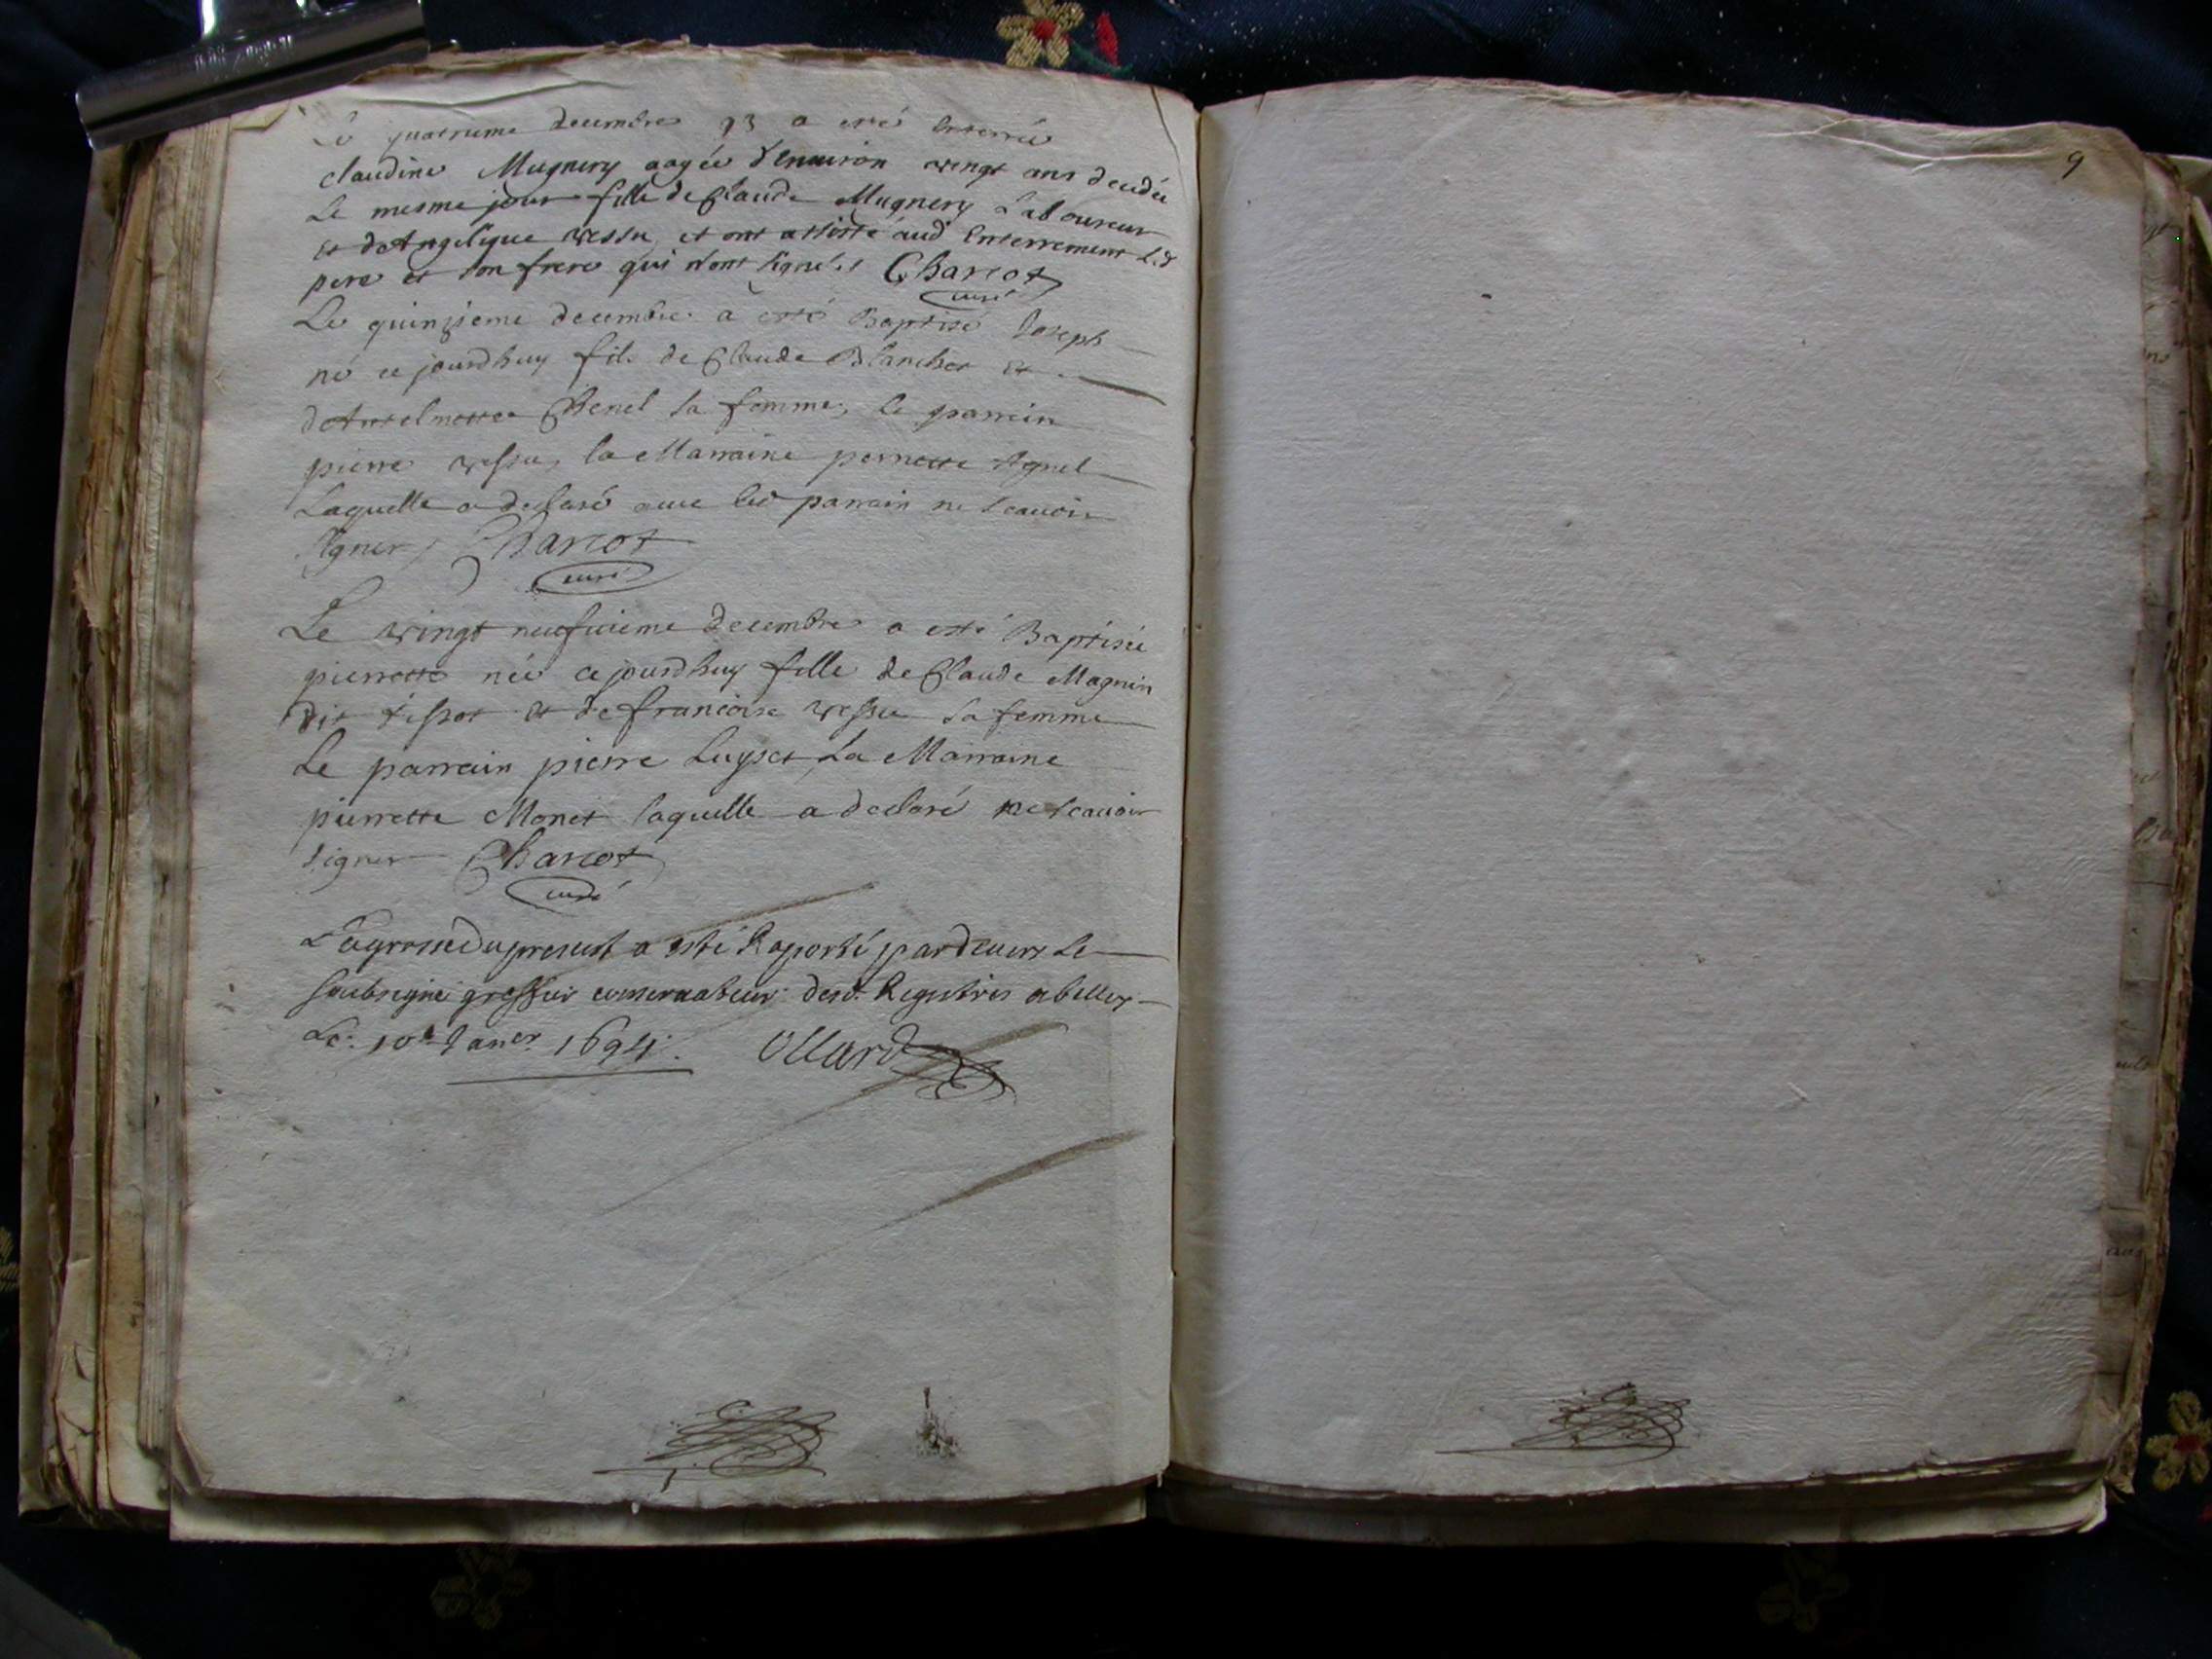 Le quatrieme decembre 93 a esté enterrée
claudine Mugnery aagée d'enuiron vingt ans decedée
Le mesme jour fille de Claude Mugnery Laboureur
et d'Angelique vessu, et ont assisté aud enterrement Led
pere et son frere qui n'ont signé Charcot
curé
Le quinzieme decembre a esté Baptisé Joseph
né ce jourdhuy fils de Claude Blanchet et
d'Antelmette Benel sa femme, le parrein
pierre vessu, la Marraine pernette Agnel
Laquelle a declaré auec led parrain ne scauoir
signer, Charcot
curé
Le vingt neufuieme decembre a esté Baptisée
pierrette née ce jourdhuy fille de Claude Magnin
dit tissot et de francoise vessu sa femme
Le parrain pierre Luyset La Marraine
pierrette Monet laquelle a declaré ne scauoir
signer Charcot
curé
La grosse du present a esté Raporté pardeuers Le
soubsigné greffier conseruateur desd. Registres a belley
Le. 10e Janer 1694. Ollard
9